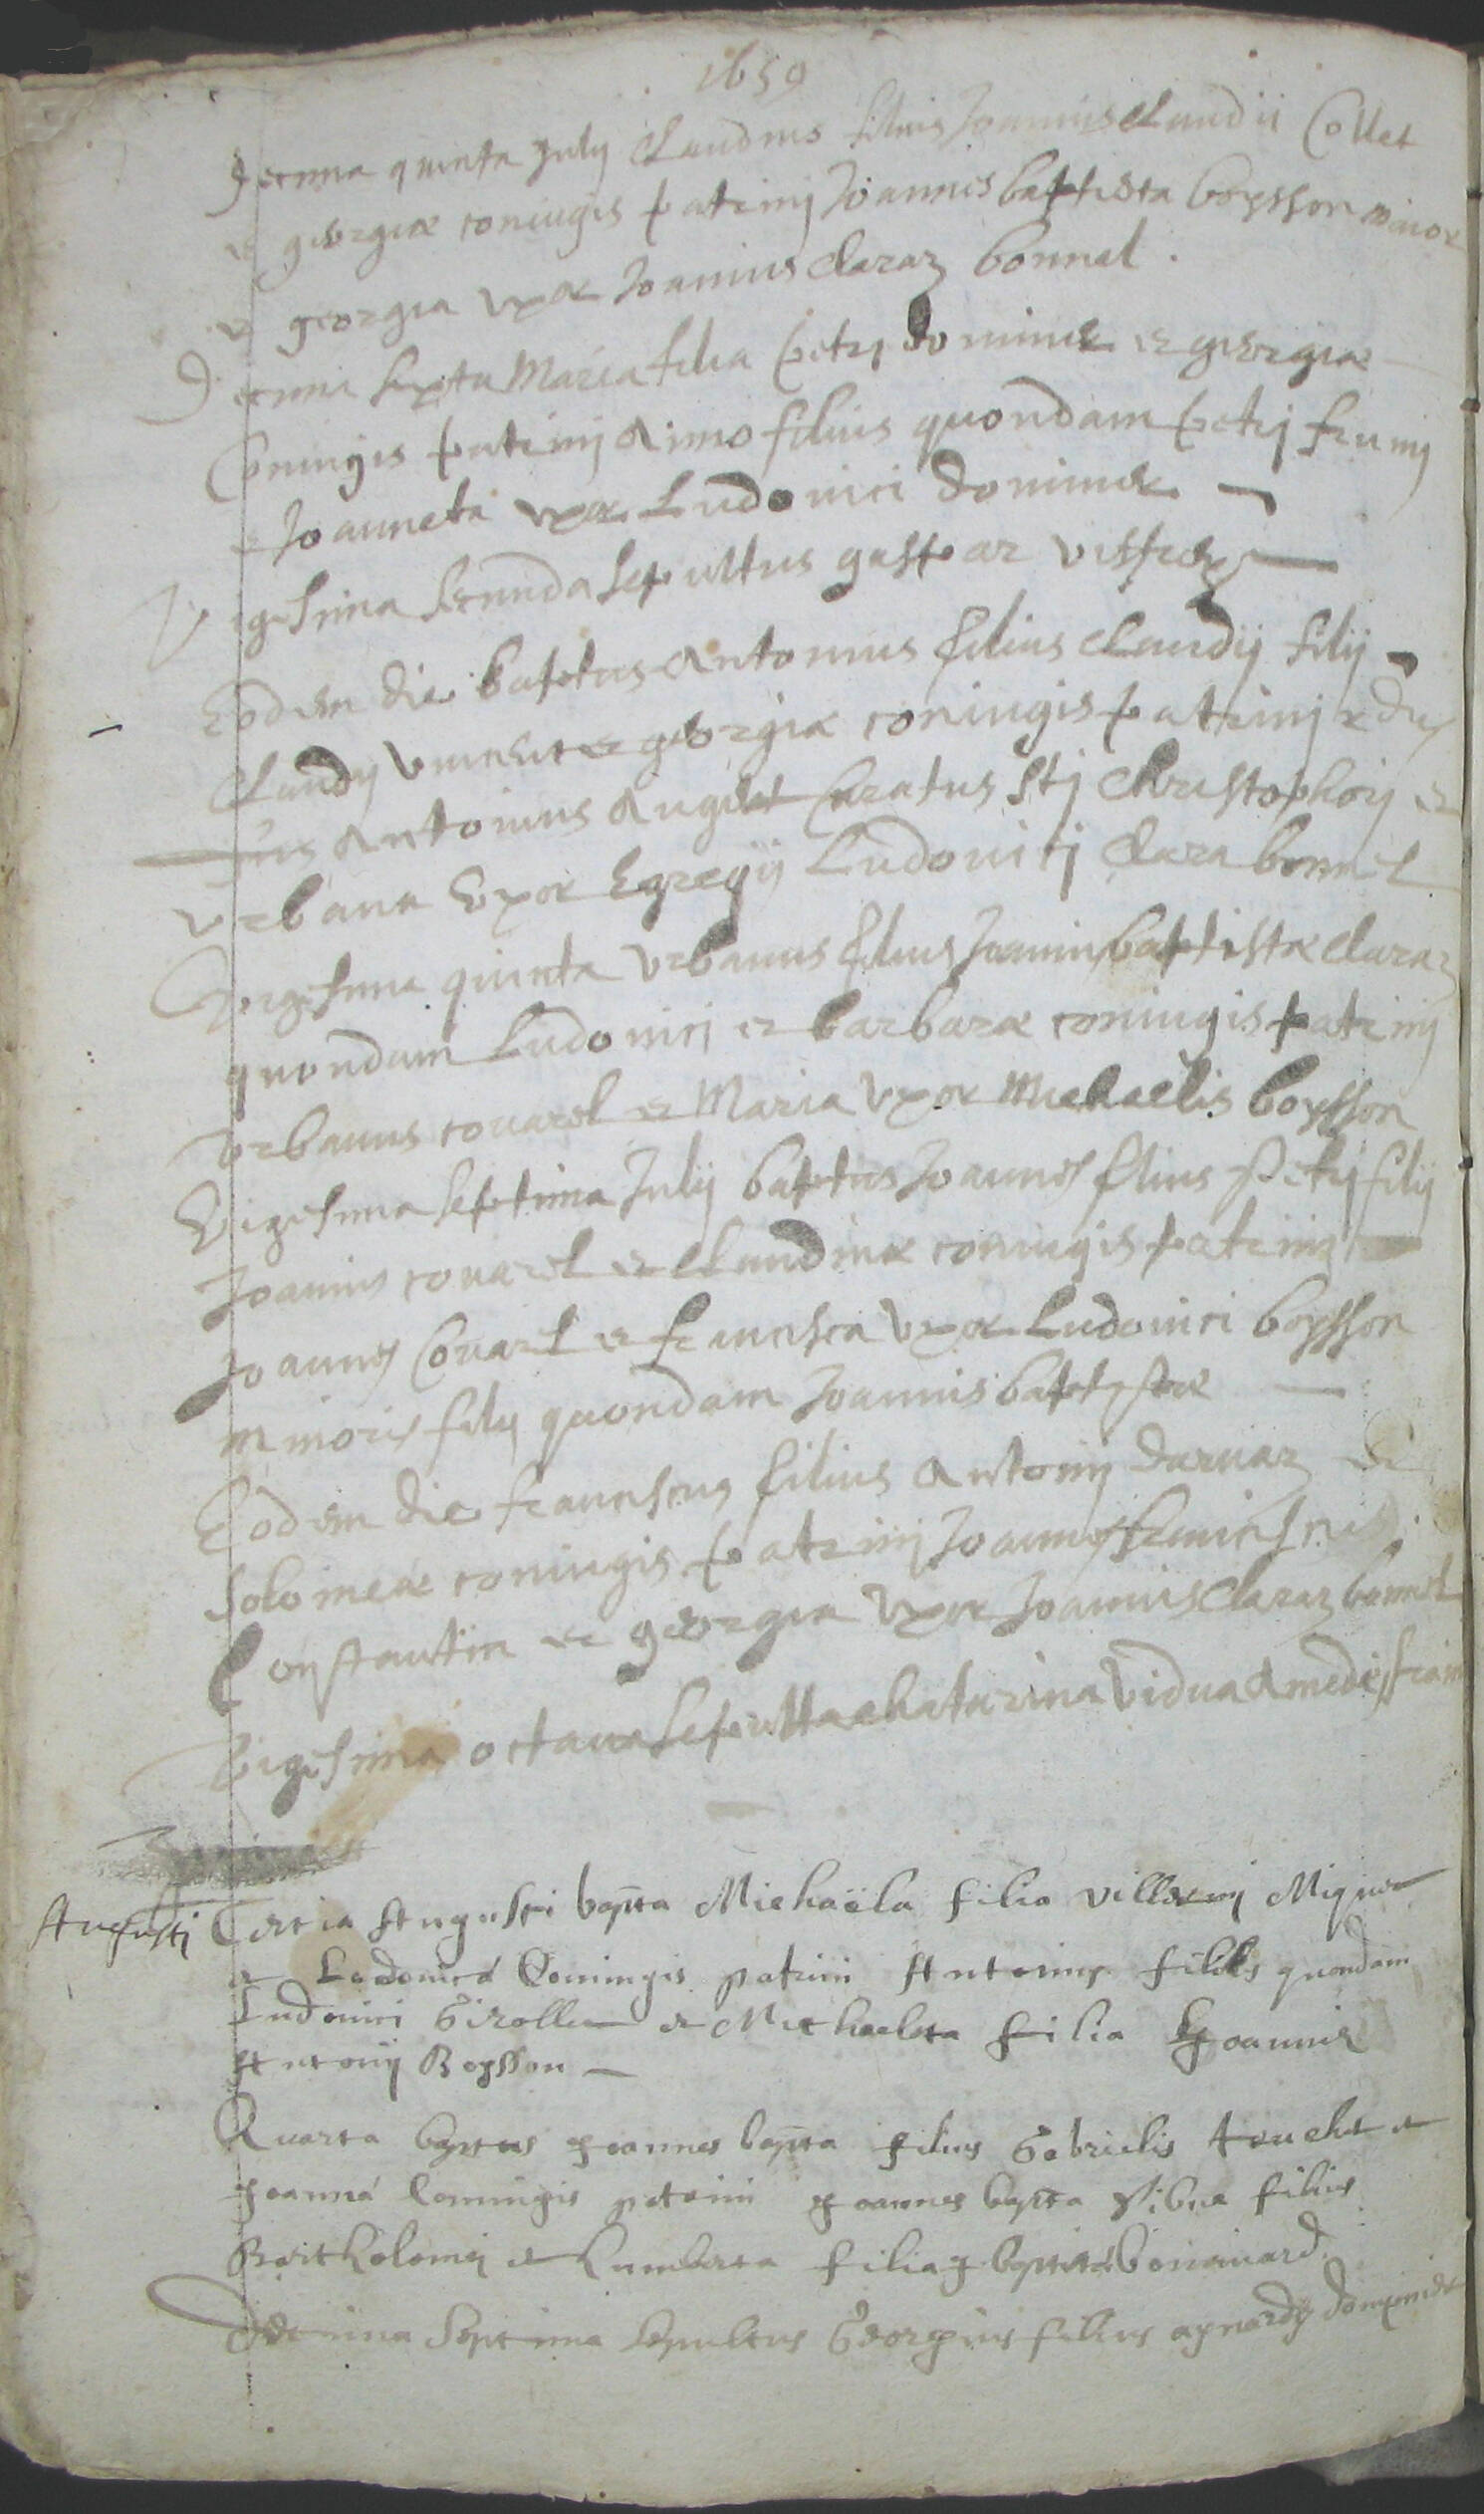 1659
Decima quinta July Claudius filius Joannis Claudii Collet
et georgiæ coniugis patrinj Joannes baptista boysson minor
et georgia vxor Joannis Claraz bonnel .
Decima sexta Maria filia petrj dominik et georgiæ
Coniugis patrinj Aimo filius quondam petrj
et Joanneta vxor Ludovici dominik
Vigesima secunda sepultus gaspar
Eodem die baptus Antonius filius Claudij filij
Claudij vincent et georgiæ coniugis patrinj
Antonius Curatus Stj Christophorj et
vrbana vxor Egregij Ludovicj clara bonnel
Vigesima quinta vrbanus filius Joannis baptistæ claraz
quondam Ludovicj et barbaræ coniugis patrinj
vrbanus covarel et Maria vxor Michaelis boysson
Vigesima septima Julij baptus Joannes filius Petrj filij
Joannis covarel et Claudinæ coniugis patrinj
Joannes Covarel et francisca vxor Ludovici boysson
minoris filij quondam Joannis baptistæ
Eodem die franciscus filius Antonij darvaz et
Solomeæ coniugis patrinj Joannes franciscus
Constantin et georgia vxor Joannis claraz bonnel
Vigesima octava sepulta chatarina vidua Amedej
Augustj Tertia Augusti bapta Michaëla filia Villermj
et Ludovicá Coniugis patrini Antonius filius quondam
Ludovici Girollet et Michaeleta filia Joannis
Antonij Boysson
Quarta baptus Joannes bapta filius Gabrielis et
Joanná Coniugis patrini Joannes bapta filius
Bartholomej et humberta filia J baptistá
Decima septima sepultus Georgius filius aynardj